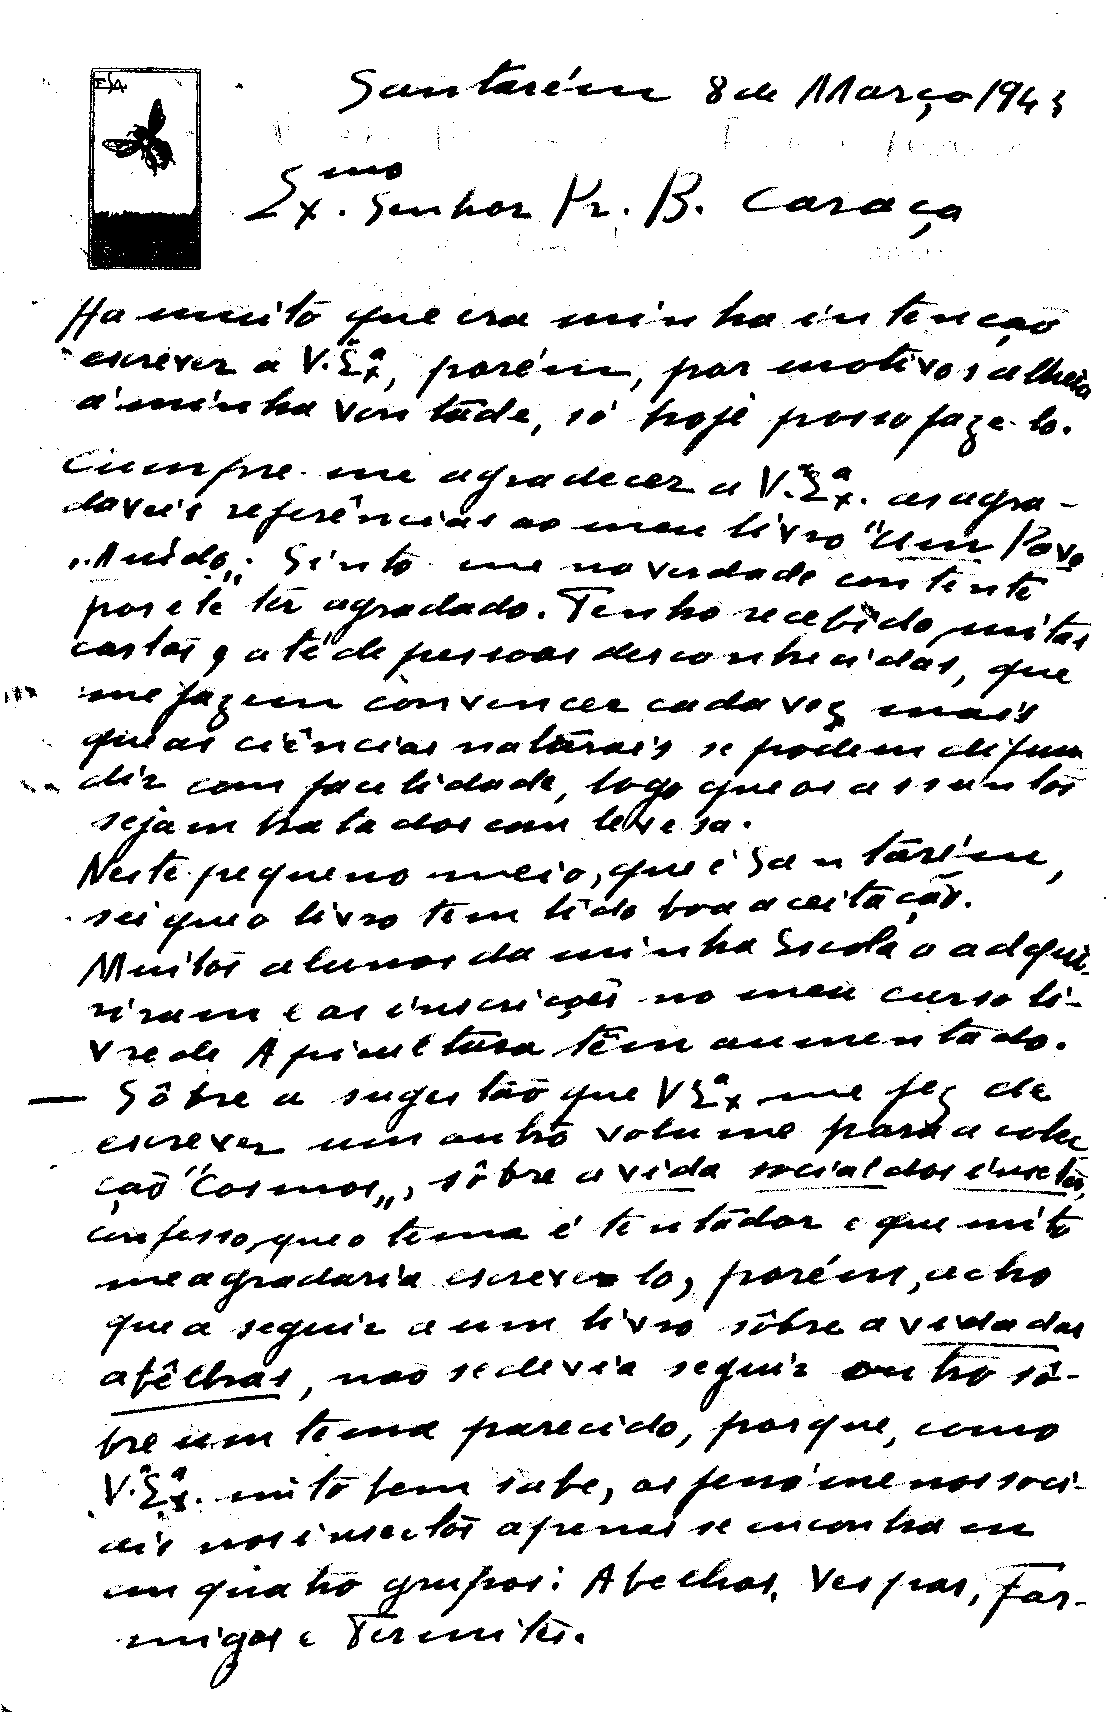 ESA
Santarém 8 de Março/1943
Exmo. Senhor Pr. B. Caraça
Ha muito que era minha intenção
escrever a V. Exª, porém, por motivos alheios
á minha vontade, só hoje posso faze-lo.
Cumpre-me agradecer a V. Exª. as agra-
daveis referências ao meu livro "Um Povo
"Anído". Sinto-me na verdade contente
por êle ter agradado. Tenho recebido muitas
cartas, até de pessoas desconhecidas, que
me fazem convencer cada vez mais
que as ciências naturais se podem difun
dir com facilidade, logo que os assuntos
sejam tratados com leveza.
Neste pequeno meio, que é Santarém,
sei que o livro tem tido boa aceitação.
Muitos alunos da minha Escola o adqui-
riram e as inscrições no meu curso li-
vre de Apicultura têm aumentado.
— Sôbre a sugestão que V Exª me fez de
escrever um outro volume para a cole
ção "Cosmos", sôbre a vida social dos insectos,
confesso, que o tema é tentador e que muito
me agradaria escreve-lo, porém, acho
que a seguir a um livro sôbre a vida das
abêlhas, não se devia seguir outro sô-
bre um tema parecido, porque, como
V. Exª. muito bem sabe, os fenómenos soci-
ais nos insectos apenas se encontram
em quatro grupos: Abelhas, Vespas, For-
migas e Termites.